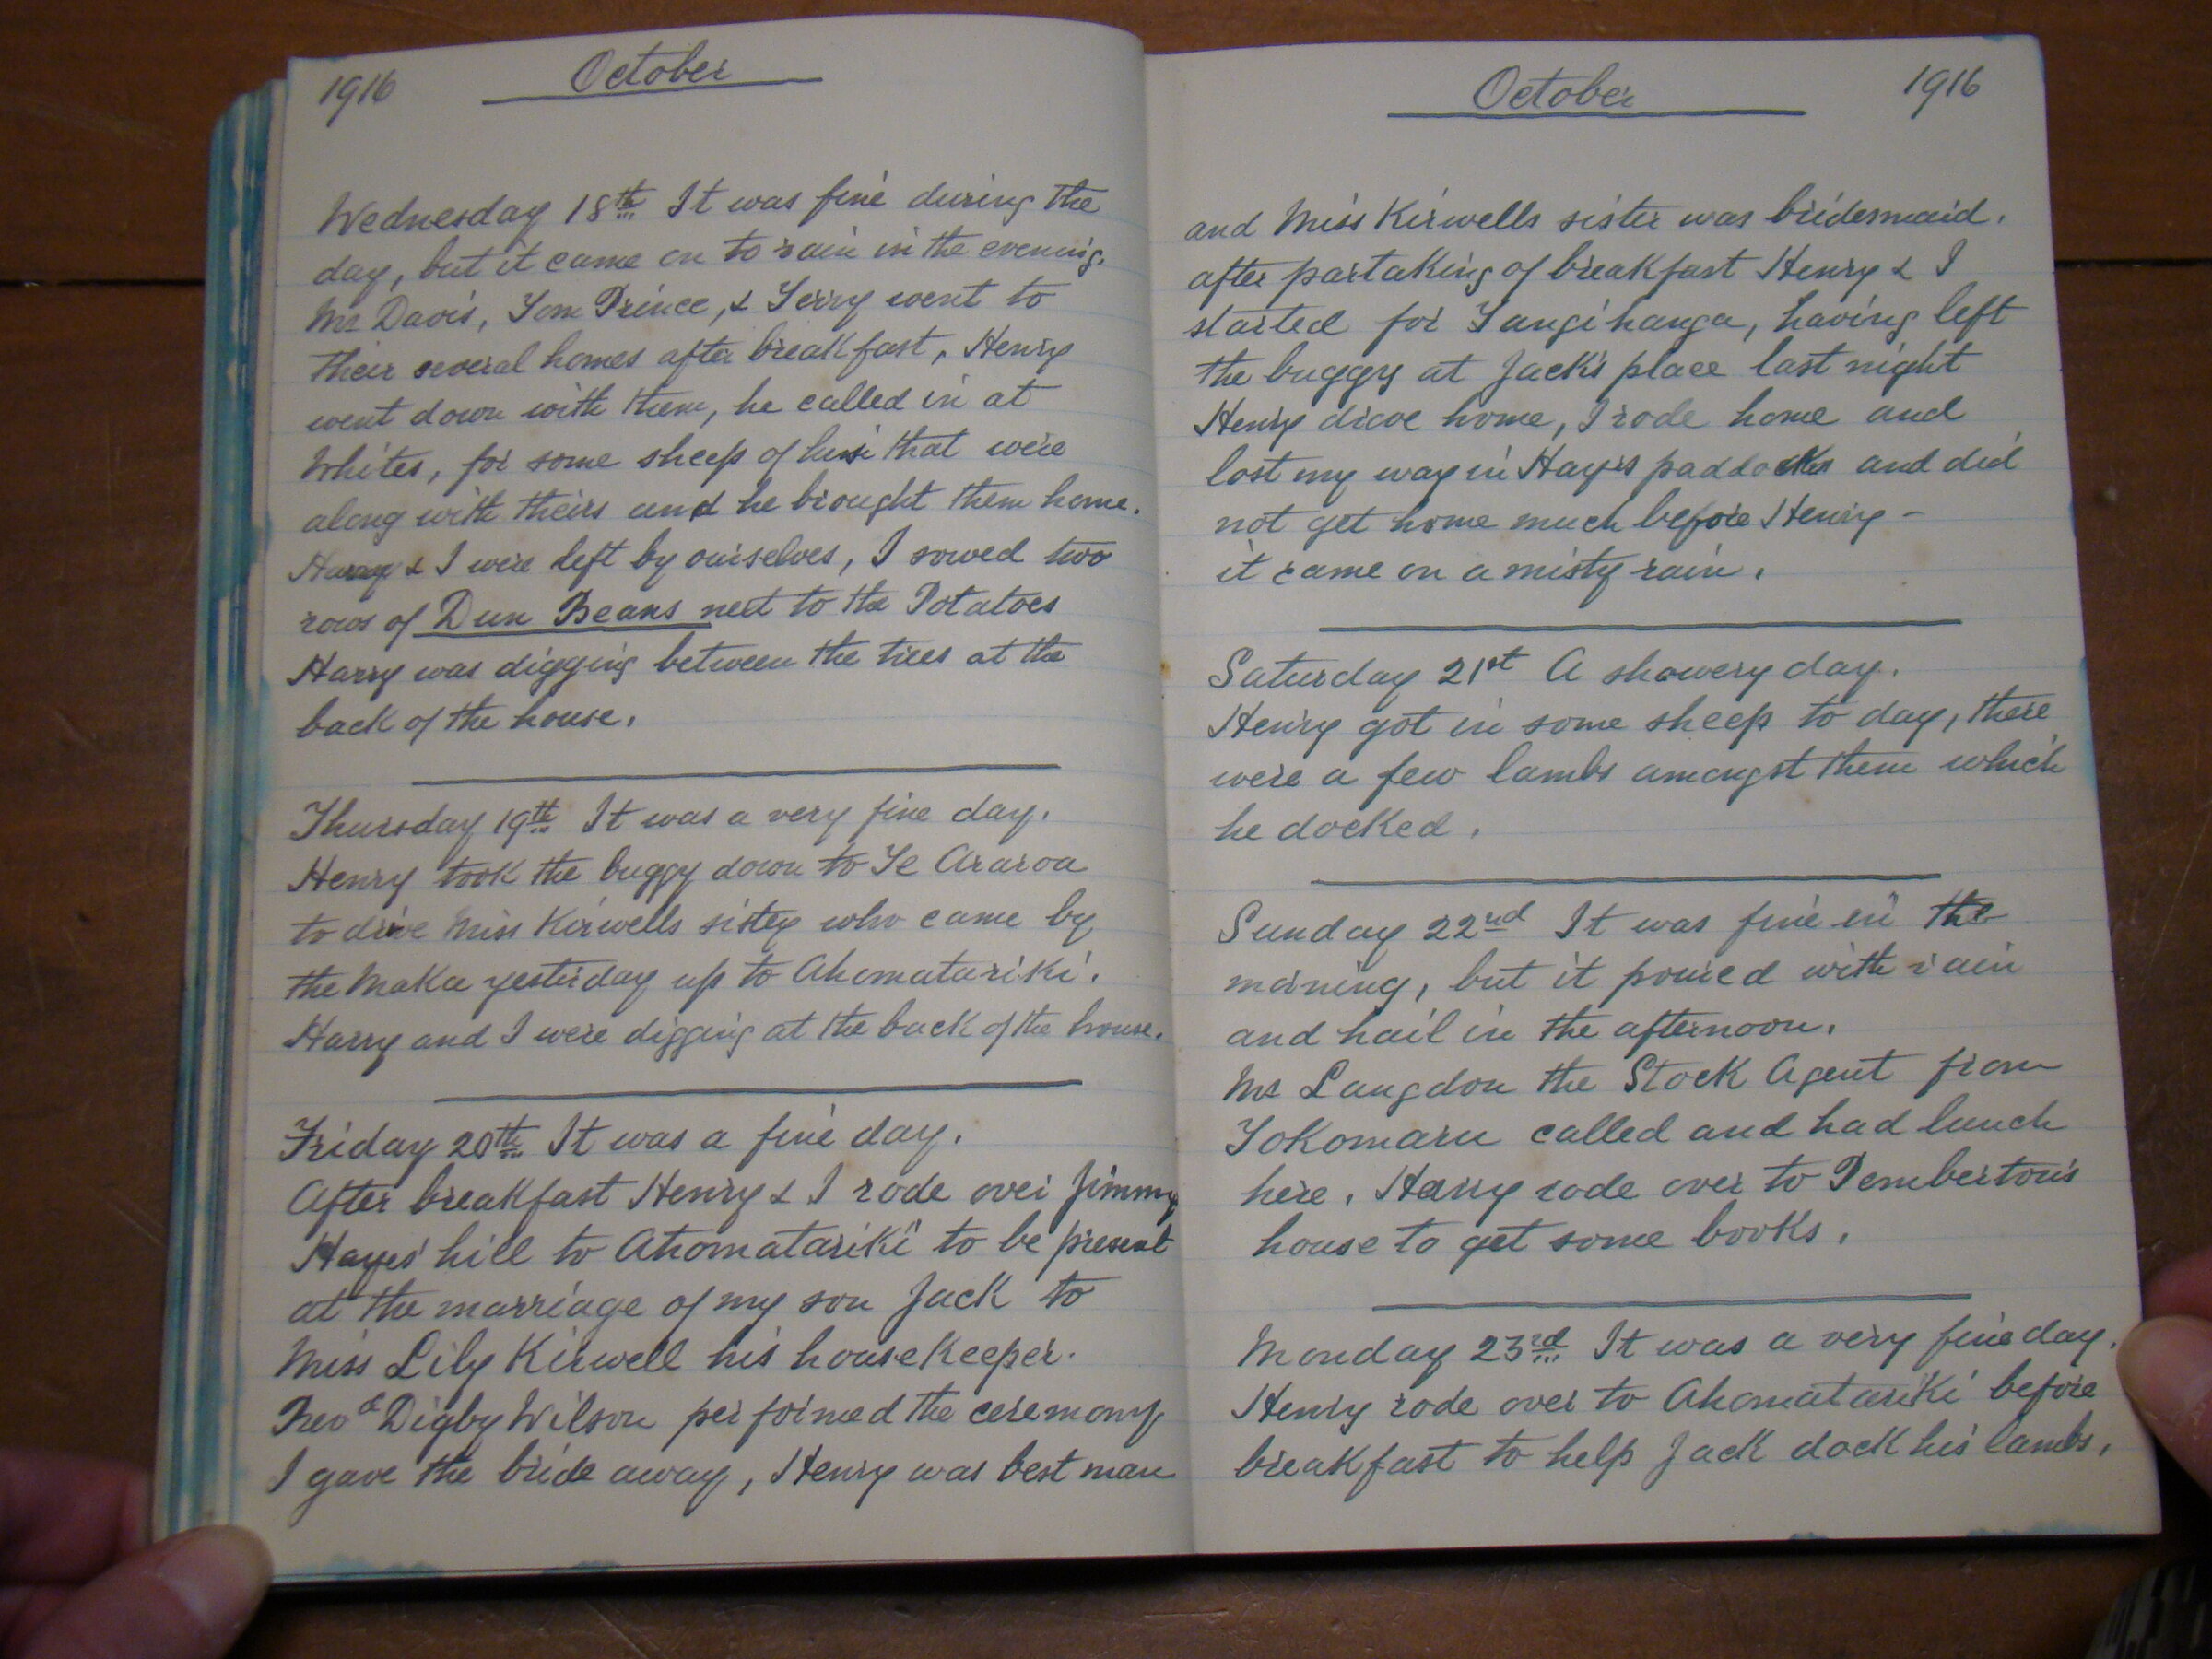 1916 October
Wednesday 18th It was fine during the
day, but it came on to rain in the evening.
Mr Davis, Tom Prince, & Terry went to
their several homes after breakfast, Henry
went down with them, he called in at
Whites, for some sheep of his that were
along with theirs and he brought them home.
Harry & I were left by ourselves, I sowed two
rows of Dun Beans next to the Potatoes
Harry was digging between the trees at the
back of the house.
Thursday 19th It was a very fine day.
Henry took the buggy down to Te Araroa
to drive Miss Kirwells sister who came by
the Mako yesterday up to Ahomatariki.
Harry and I were digging at the back of the house.
Friday 20th It was a fine day.
After breakfast Henry & I rode over Jimmy
Hayes' hill to Ahomatariki to be present
at the marriage of my son Jack to
Miss Lily Kirwell his housekeeper.
Revd Digby Wilson performed the ceremony
I gave the bride away, Henry was best man
October 1916
and Miss Kirwells sister was bridesmaid.
after partaking of breakfast Henry & I
started for Tangihanga, having left
the buggy at Jack's place last night
Henry drove home, I rode home and
lost my way in Hay's paddocks and did
not get home much before Henry -
it came on a misty rain.
Saturday 21st A showery day.
Henry got in some sheep to day, there
were a few lambs amongst them which
he docked.
Sunday 22nd It was fine in the
morning, but it poured with rain
and hail in the afternoon.
Mr Langdon the Stock Agent from
Tokomaru called and had lunch
here. Harry rode over to Pemberton's
house to get some books.
Monday 23rd It was a very fine day.
Henry rode over to Ahomatariki before
breakfast to help Jack dock his lambs.